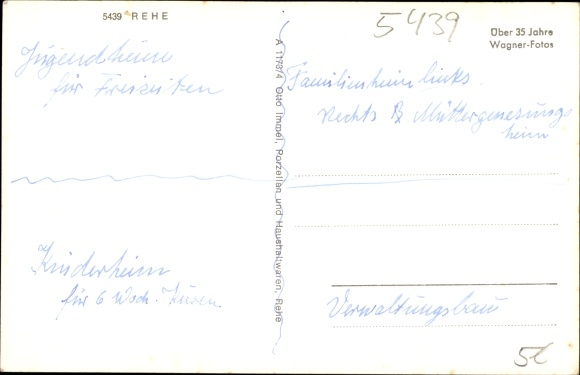 5439 REHE
5439
Über 35 Jahre
Wagner-Fotos
Jugendheim
für Freizeiten
Familienheim links.
rechts Müttergenesungs
heim
A 1178/4 Otto Immel, Porzellan und Haushaltwaren, Rehe
Kinderheim
für 6 Woch. Kuren
Verwaltungsbau
5€